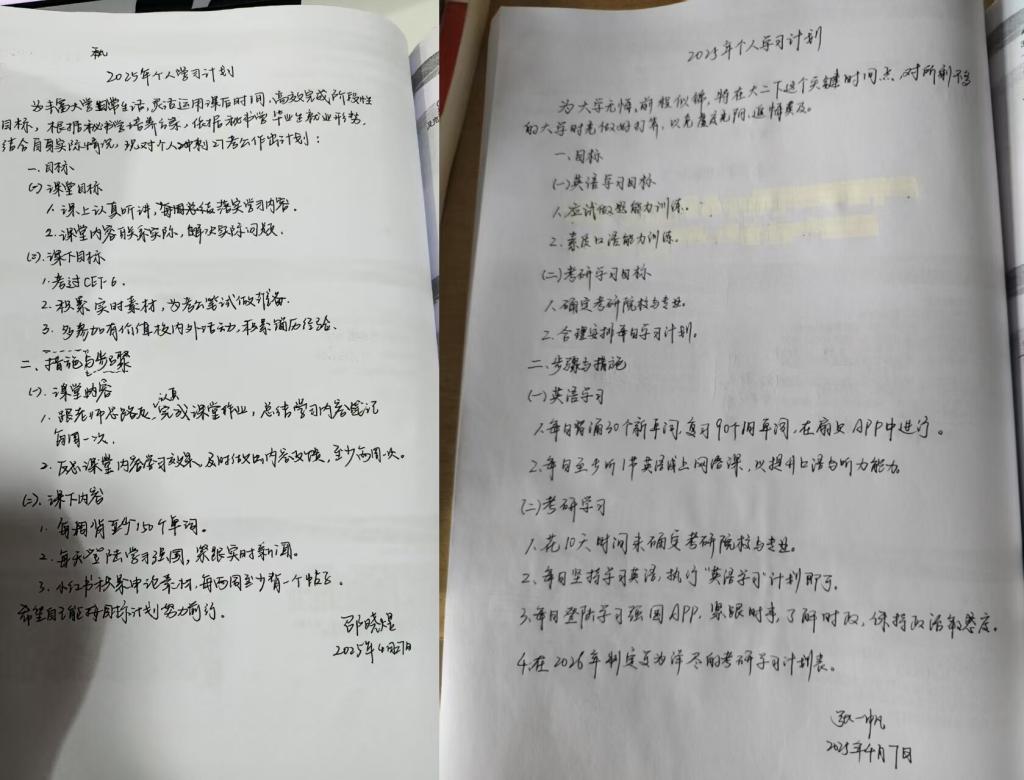 2025年个人学习计划
为丰富大学日常生活,灵活运用课后时间,高效完成阶段性
目标,根据秘书学培养方案,依据秘书学毕业生就业形势,
结合自身实际情况,现对个人冲刺27考公作出计划:
一、目标
(一)课堂目标
1. 课上认真听讲,每周总结落实学习内容.
2. 课堂内容联系实际,解决实际问题.
(二)课下目标
1. 考过CET-6.
2. 积累实时素材,为考公笔试做准备.
3. 多参加有价值校内外活动,积累简历经验.
二、措施与步骤
(一)课堂内容
1. 跟老师思路走,认真完成课堂作业,总结学习内容笔记
每周一次.
2. 反思课堂内容学习效果,及时做出内容反馈,至少两周一次.
(二)课下内容
1. 每周背至少150个单词。
2. 每天登陆学习强国,紧跟实时新闻。
3. 小红书积累申论素材,每两周至少有一个
希望自己能按目标计划努力前行。
邵晓煜
2025年4月7日
2025年个人学习计划
为大学无悔,前程似锦,将在大二下这个关键时间点,对所剩不多
的大学时光做好打算,以免虚度光阴,追悔莫及。
一、目标
(一)英语学习目标
1. 应试做题能力训练。
2. 素质口语能力训练。
(二)考研学习目标
1. 确定考研院校与专业。
2. 合理安排每日学习计划。
二、步骤与措施
(一)英语学习
1. 每日背诵30个新单词,复习90个旧单词,在扇贝APP中进行。
2. 每日至少听1节英语线上网络课,以提升口语与听力能力。
(二)考研学习
1. 花10天时间来确定考研院校与专业。
2. 每日坚持学习英语,执行“英语学习”计划即可。
3. 每日登陆学习强国APP,紧跟时事,了解时政,保持政治敏感度。
4. 在2026年制定更为详尽的考研学习计划表。
一帆
2025年4月7日